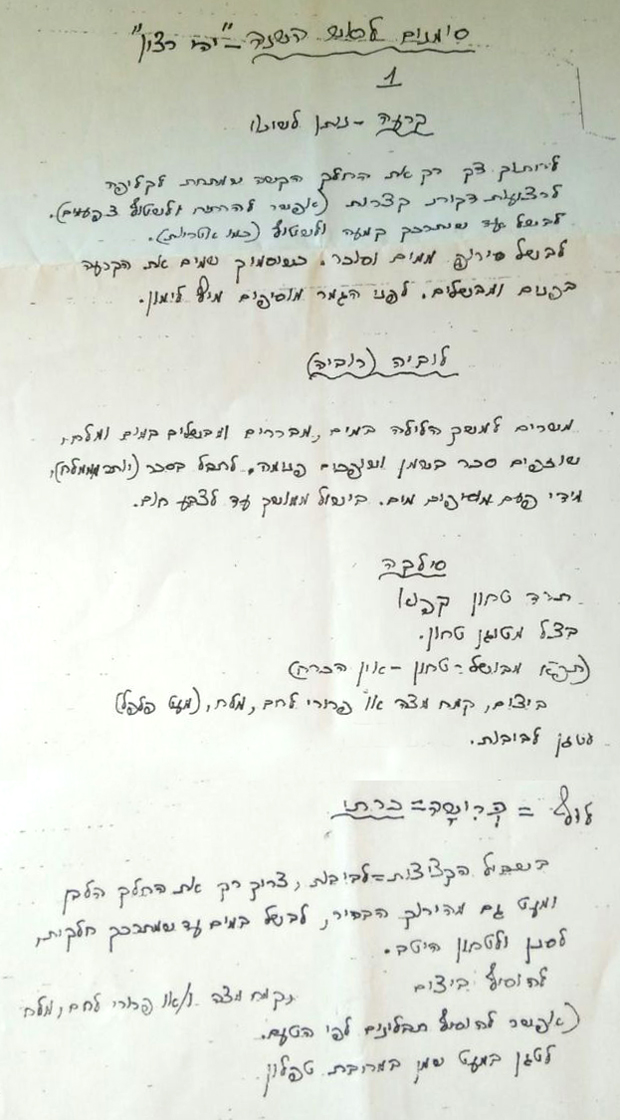 סימנים לראש השנה - "יהי רצון"
1
קרעה - ניתן לשוטו
לחתוך דק רק את החלק הקשה שמתחת לקליפה
לרצועות דקות קצרות (אפשר להרתיח ולשטוף פעמים).
לבשל עד שמתרכך קמעה ולשטוף (כמו אטריות).
לבשל סירופ ממים וסוכר. כשנסמיך שמים את הקרעה
בפנים ומבשלים. לפני הגמר מוסיפים מיץ לימון.
לוביה (רוביה)
משרים למשך הלילה במים, מבררים ומבשלים במים ומלח,
שוזפים סכר בשמן ושופכים פנימה. לתבל בסכר (יותר ממלח),
מידי פעם מוסיפים מים. בישול ממושך עד לצבע חום.
סילקה
תרד טחון קפוא
בצל מטוגן טחון.
(תפו"א מבושל טחון - אין הכרח)
ביצים, קמח מצה או פרורי לחם, מלח, (מעט פלפל)
לטגן לביבות.
לוף = קרישה = כרתי
בשביל הקציצות=לביבות, צריך רק את החלק הלבן
ומעט גם מהירוק הבהיר, לבשל במים עד שמתרכך חלקית,
לסנן ולטחון היטב.
להוסיף ביצים וקמח מצה ו/או פרורי לחם, מלח
(אפשר להוסיף תבלינים לפי הטעם.
לטגן במעט שמן במחבת טפלון